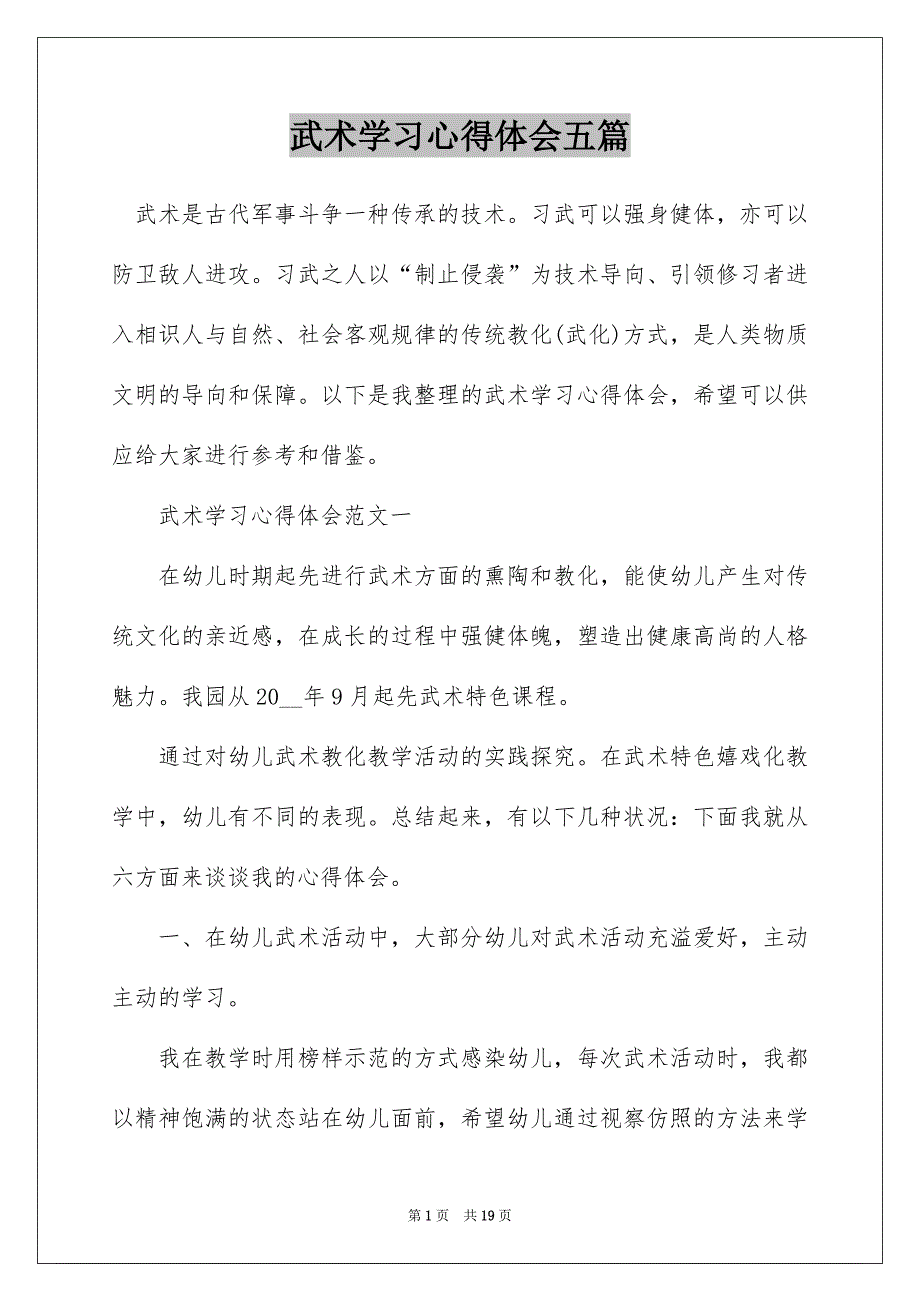 武术学习心得体会五篇
武术是古代军事斗争一种传承的技术。习武可以强身健体，亦可以
防卫敌人进攻。习武之人以“制止侵袭”为技术导向、引领修习者进
入相识人与自然、社会客观规律的传统教化(武化)方式，是人类物质
文明的导向和保障。以下是我整理的武术学习心得体会，希望可以供
应给大家进行参考和借鉴。
武术学习心得体会范文一
在幼儿时期起先进行武术方面的熏陶和教化，能使幼儿产生对传
统文化的亲近感，在成长的过程中强健体魄，塑造出健康高尚的人格
魅力。我园从 20__年 9 月起先武术特色课程。
通过对幼儿武术教化教学活动的实践探究。在武术特色嬉戏化教
学中，幼儿有不同的表现。总结起来，有以下几种状况：下面我就从
六方面来谈谈我的心得体会。
一、在幼儿武术活动中，大部分幼儿对武术活动充溢爱好，主动
主动的学习。
我在教学时用榜样示范的方式感染幼儿，每次武术活动时，我都
以精神饱满的状态站在幼儿面前，希望幼儿通过视察仿照的方法来学
第 1 页 共 19 页